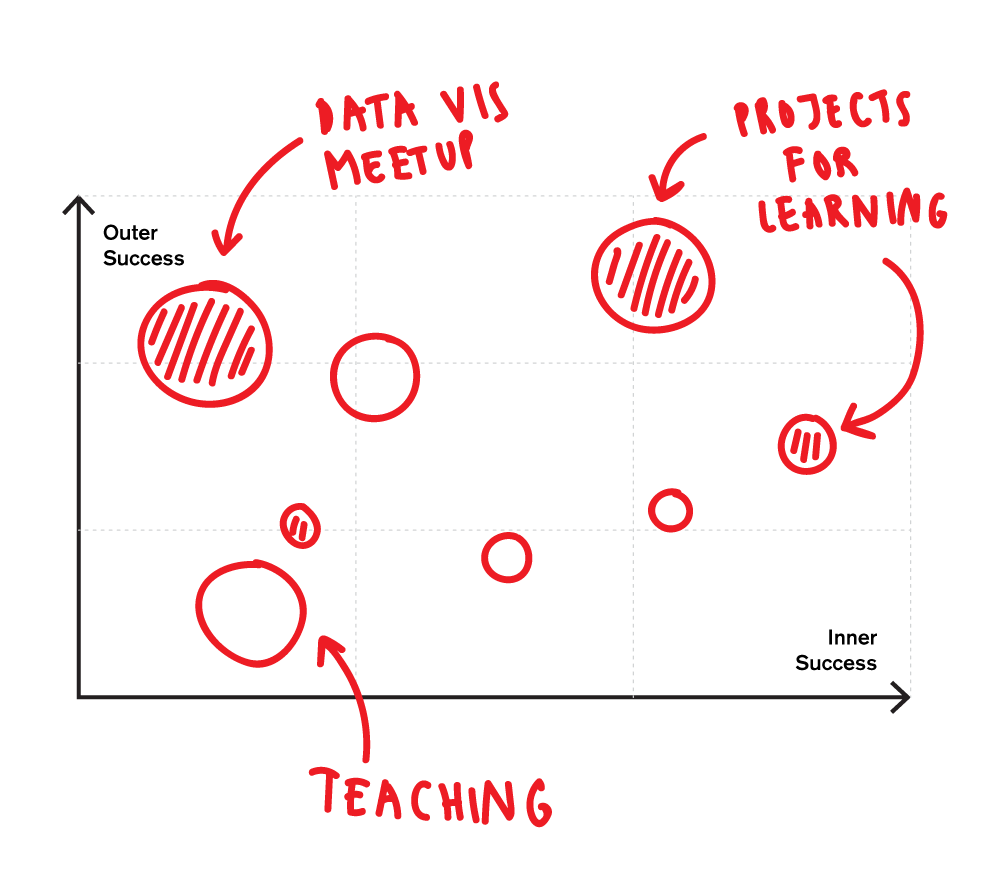 DATA VIS
MEETUP
PROJECTS
FOR
LEARNING
Outer
Success
Inner
Success
TEACHING